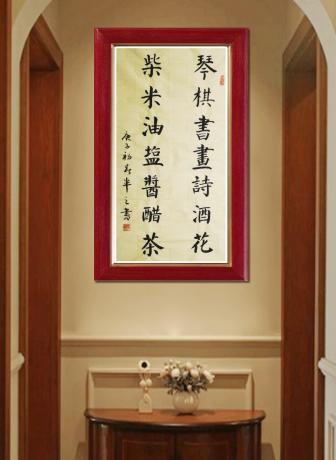 琴棋書畫詩酒花
柴米油盐醬醋茶
庚子初春半之書